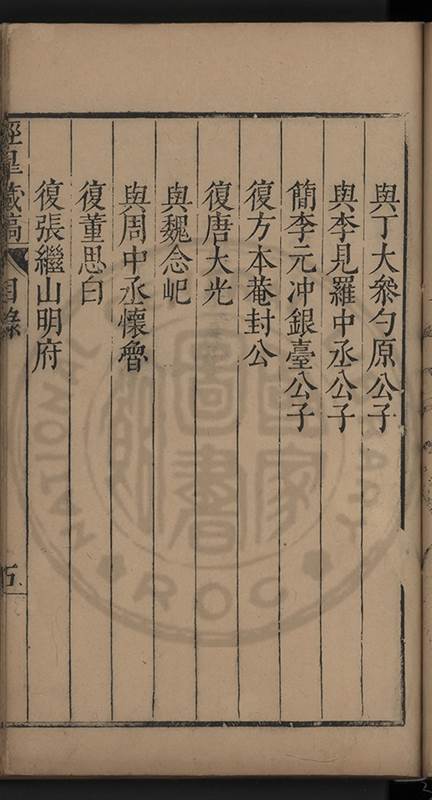 與丁大參勺原公子
與李見羅中丞公子
簡李元冲銀臺公子
復方本菴封公
復唐大光
與魏念屺
與周中丞懷魯
復董思白
復張繼山明府
涇臯藏稿 目錄 五
國家圖書